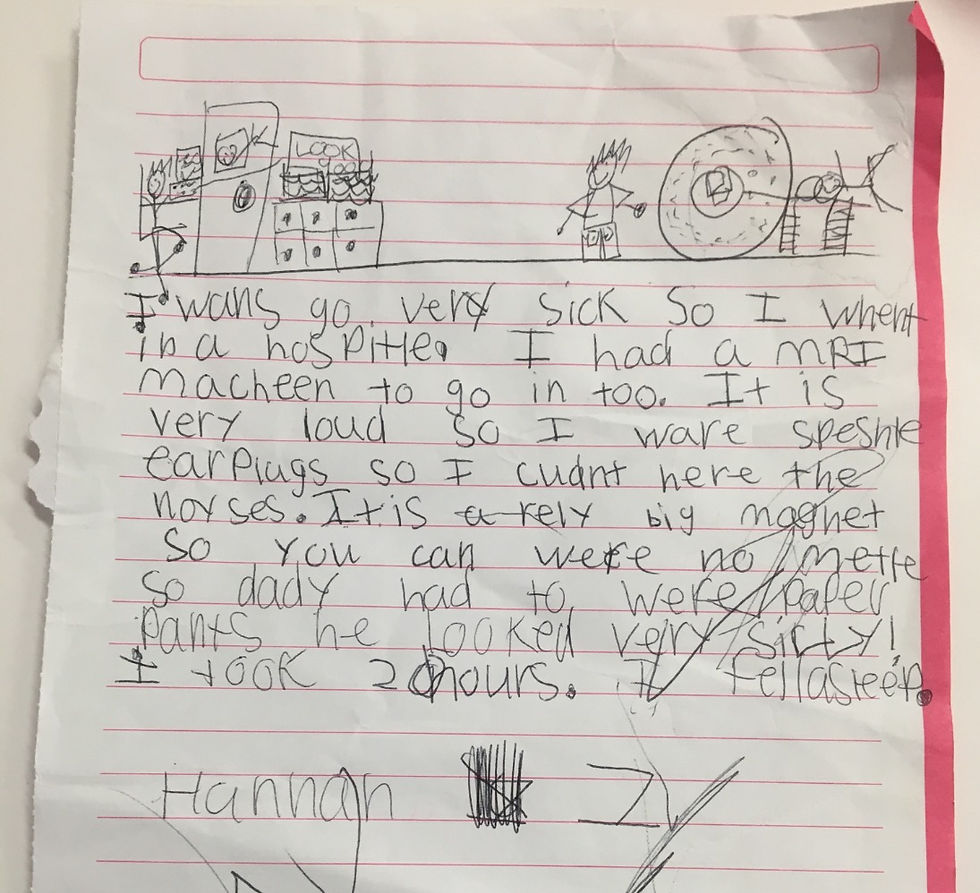 LOOK
I wans go very sick So I whent
in a hospitle. I had a MRI
macheen to go in too. It is
very loud so I ware speshle
earplugs so I cudnt here the
noyses. It is a rely big magnet
so you can were no mettle
so dady had to were paper
pants he looked very silly!
It took 2 hours. I fellasleep.
Hannah 7